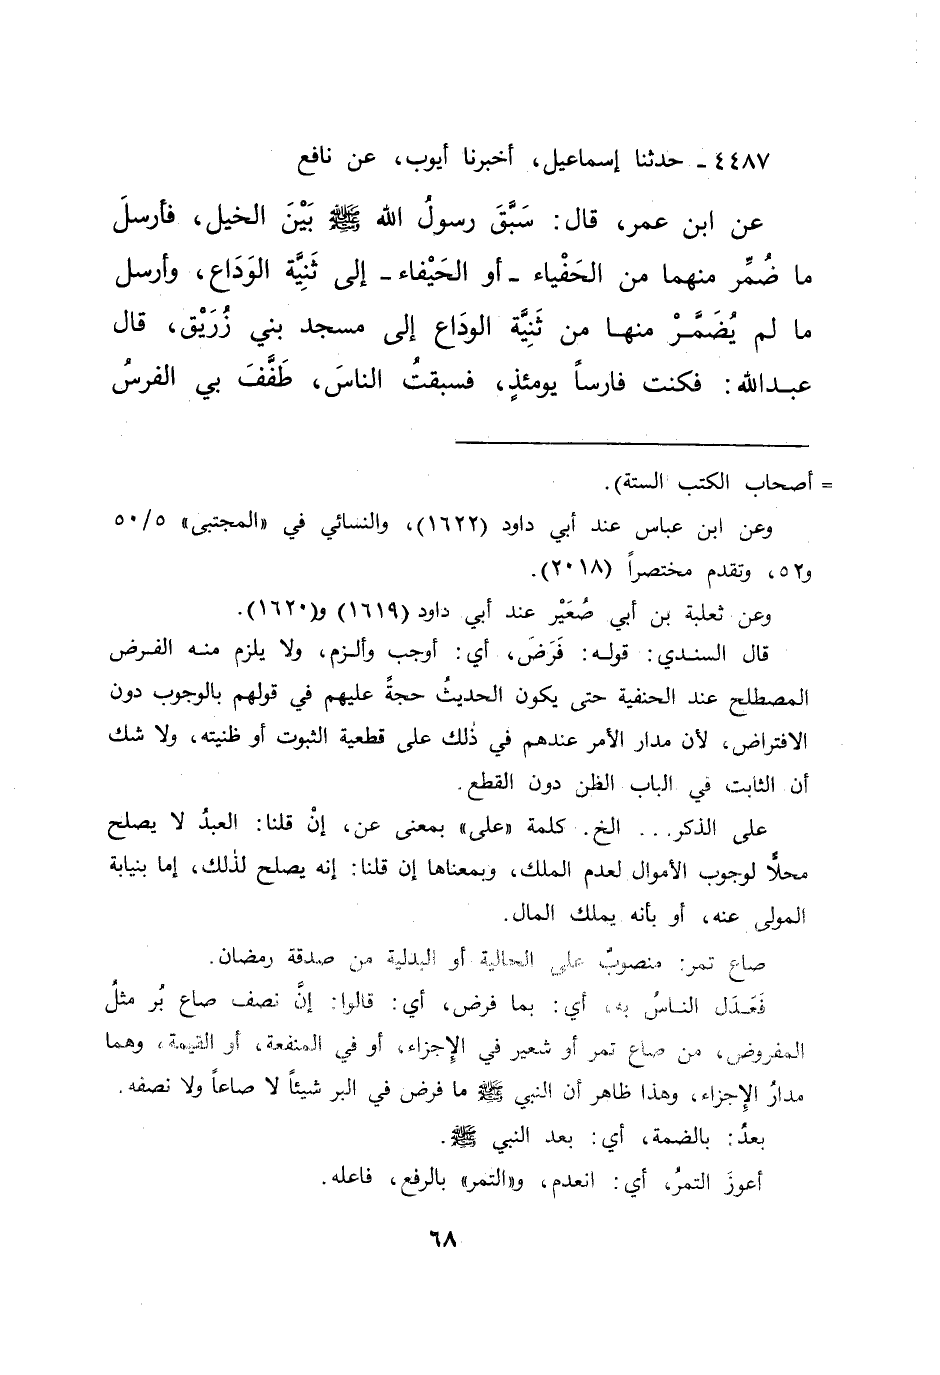 ٤٤٨٧ ـ حدثنا إسماعيل، أخبرنا أيوب، عن نافع
عن ابن عمر، قال: سَبَّقَ رسولُ الله ﷺ بَيْنَ الخيل، فأرسلَ
ما ضُمِّر منهما من الحَفْياء ـ أو الحَيْفاء ـ إلى ثَنِيَّة الوَدَاع، وأرسل
ما لم يُضَمَّرْ منها من ثَنِيَّة الودَاع إلى مسجد بني زُرَيْق، قال
عبدالله: فكنت فارساً يومئذٍ، فسبقتُ الناسَ، طَفَّفَ بي الفرسُ
= أصحاب الكتب الستة).
وعن ابن عباس عند أبي داود (١٦٢٢)، والنسائي في «المجتبى» ٥٠/٥
و٥٢، وتقدم مختصراً (٢٠١٨).
وعن ثعلبة بن أبي صُعَيْر عند أبي داود (١٦١٩) و(١٦٢٠).
قال السندي: قوله: فَرَضَ، أي: أوجب وألزم، ولا يلزم منه الفرض
المصطلح عند الحنفية حتى يكون الحديثُ حجةً عليهم في قولهم بالوجوب دون
الافتراض، لأن مدار الأمر عندهم في ذٰلك على قطعية الثبوت أو ظنيته، ولا شك
أن الثابت في الباب الظن دون القطع.
على الذكر... الخ. كلمة «على» بمعنى عن، إنْ قلنا: العبدُ لا يصلح
محلًّا لوجوب الأموال لعدم الملك، وبمعناها إن قلنا: إنه يصلح لذٰلك، إما بنيابة
المولى عنه، أو بأنه يملك المال.
صاع تمر: منصوبٌ على الحالية أو البدلية من صدقة رمضان.
فَعَدَل الناسُ به، أي: بما فرض، أي: قالوا: إنَّ نصف صاع بُر مثلُ
المفروض، من صاع تمر أو شعير في الإجزاء، أو في المنفعة، أو القيمة، وهما
مدارُ الإجزاء، وهذا ظاهر أن النبي ﷺ ما فرض في البر شيئاً لا صاعاً ولا نصفه.
بعدُ: بالضمة، أي: بعد النبي ﷺ.
أعوزَ التمرُ، أي: انعدم، و«التمر» بالرفع، فاعله.
٦٨